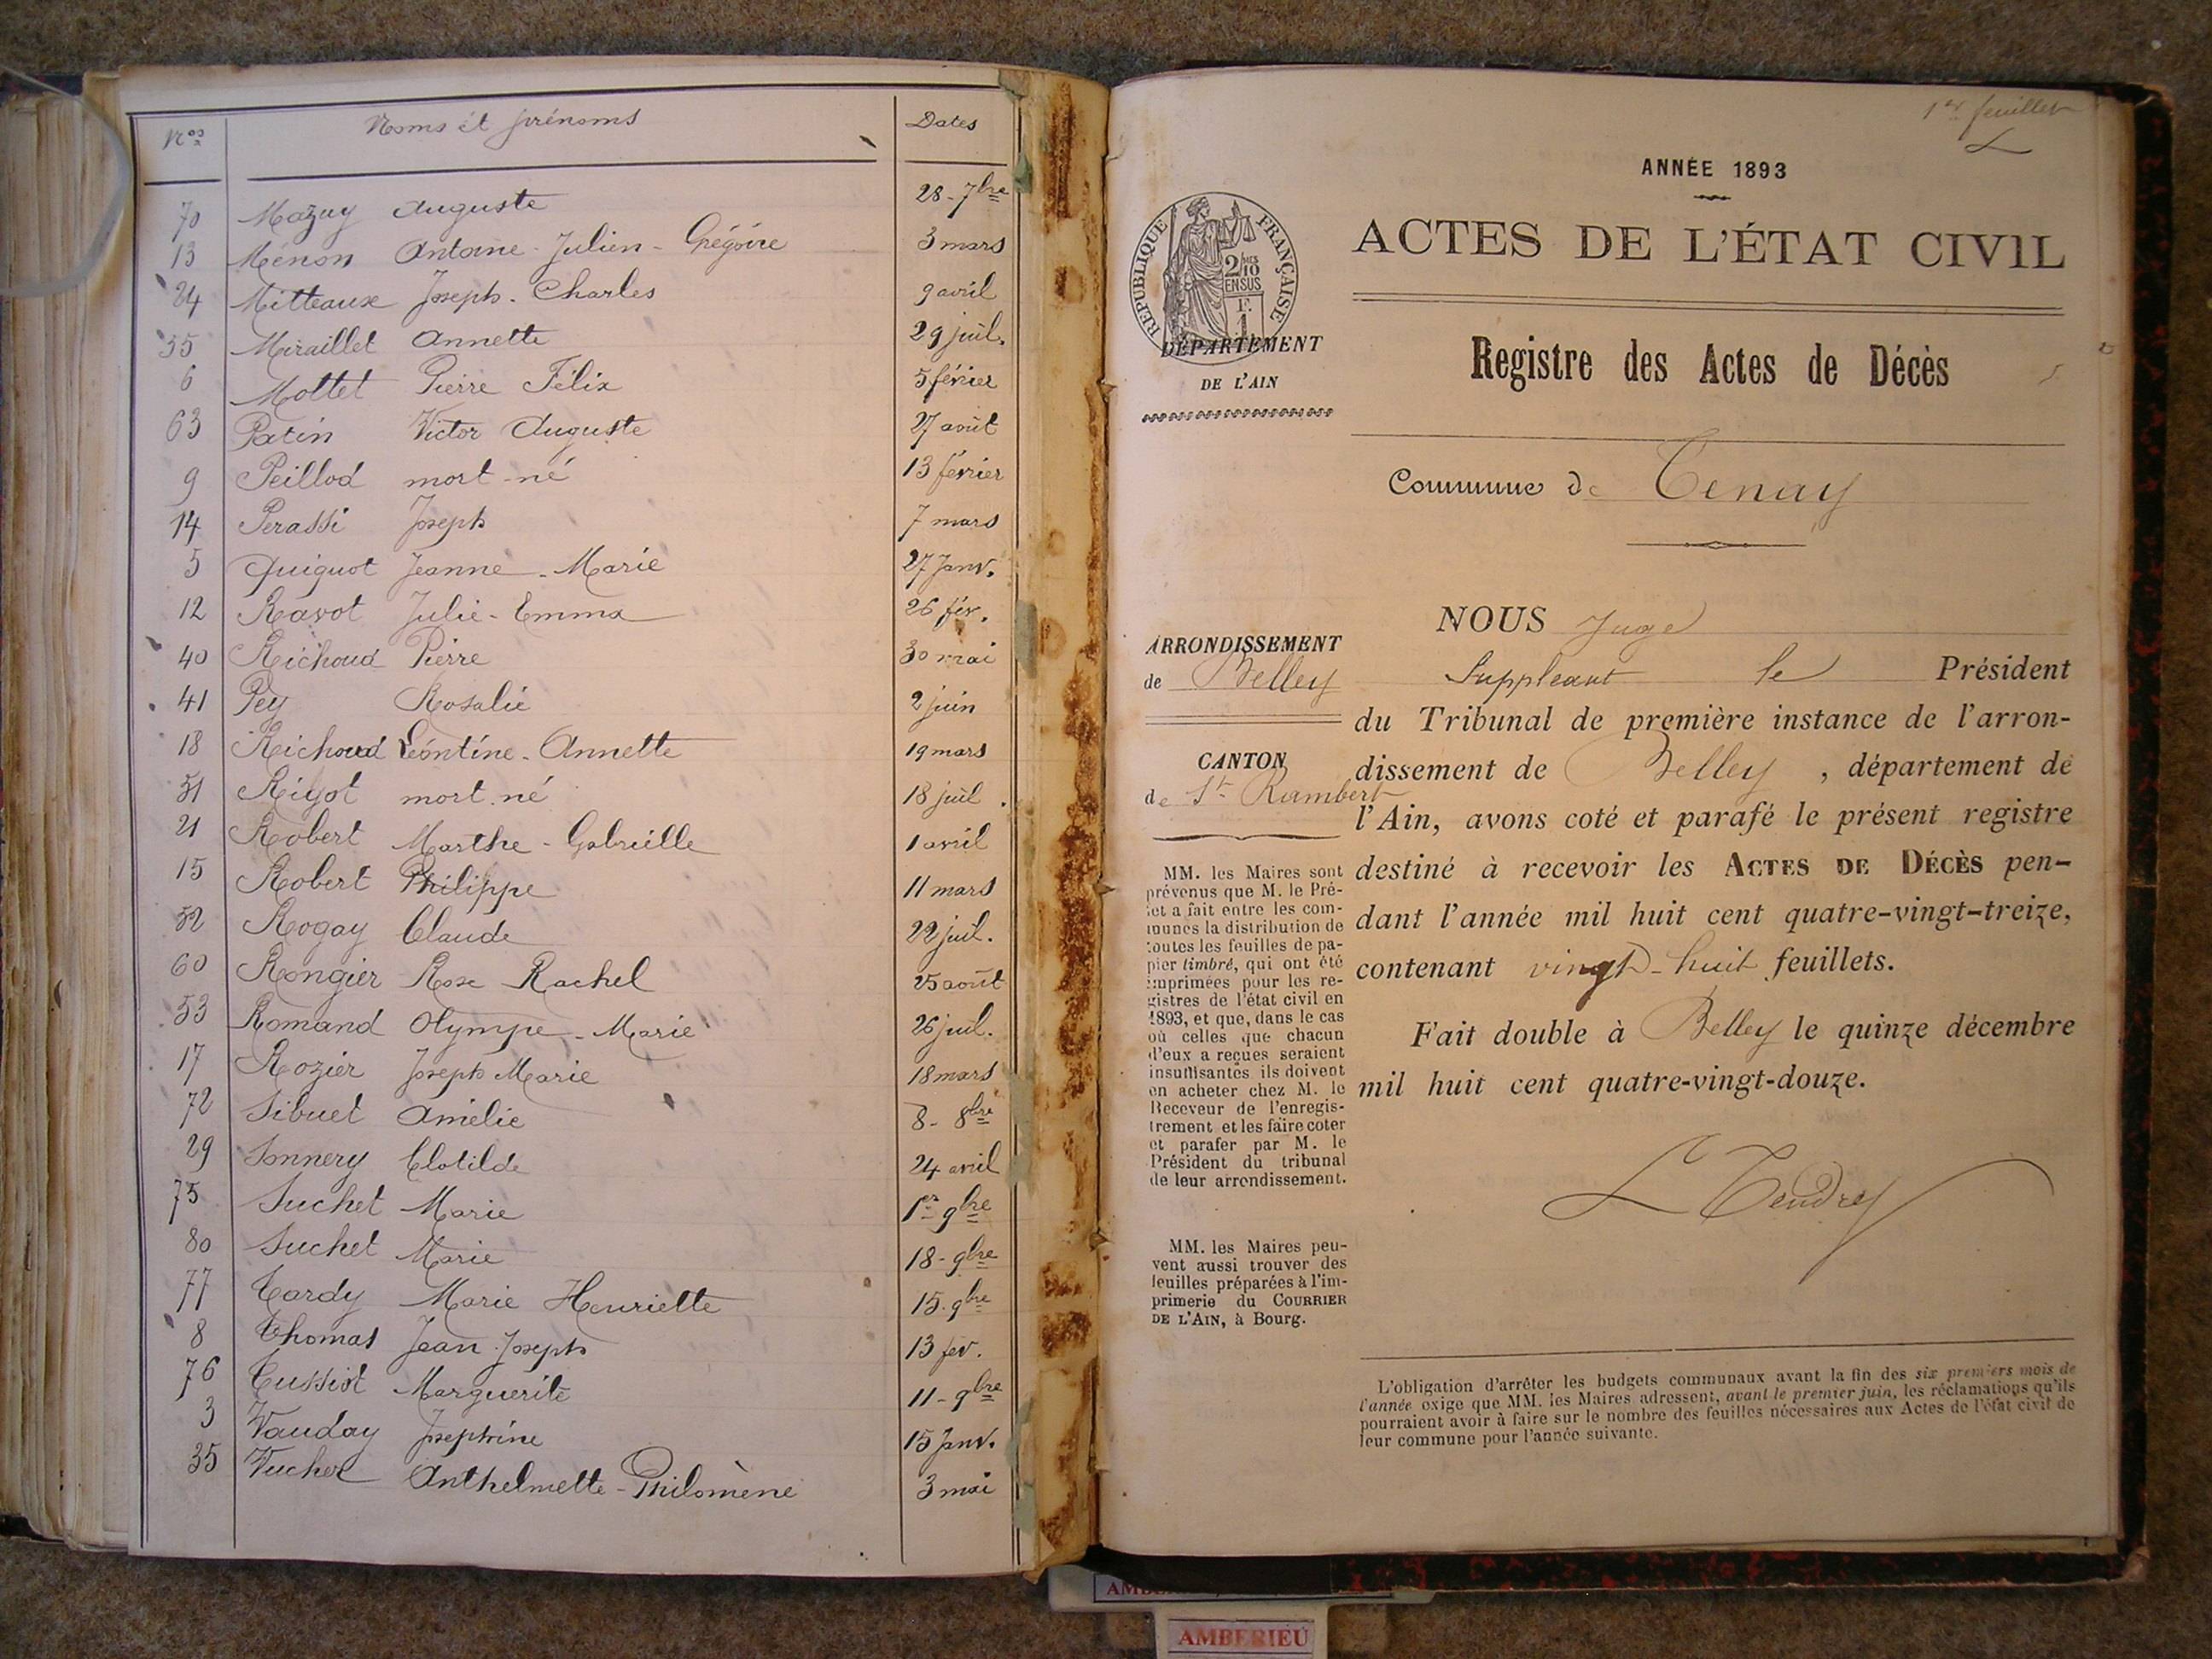 Nos Noms et prénoms Dates
70 Mazuy Auguste 28-7bre
13 Ménon Antoine-Julien-Grégoire 3 mars
24 Mitteaux Joseph-Charles 9 avril
35 Miraillet Annette 29 juil.
6 Mottet Pierre Félix 5 février
63 Patin Victor Auguste 27 août
9 Peillod mort-né 13 février
14 Perassi Joseph 7 mars
5 Quiguot Jeanne-Marie 27 Janv.
12 Ravot Julie-Emma 26 fév.
40 Richoud Pierre 30 mai
41 Pey Rosalie 2 juin
18 Richoud Léontine-Annette 19 mars
51 Rigot mort-né 18 juil.
21 Robert Marthe-Gabrielle 1 avril
15 Robert Philippe 11 mars
52 Rogay Claude 22 juil.
60 Rongier Rose Rachel 25 août
53 Romand Olympe-Marie 26 juil.
17 Rozier Joseph Marie 18 mars
72 Sibuet Amélie 8-8bre
29 Sonnery Clotilde 24 avril
75 Suchet Marie 1er 9bre
80 Suchet Marie 18-9bre
77 Tardy Marie Henriette 15-9bre
8 Thomas Jean-Joseph 13 fev.
76 Tussiot Marguerite 11-9bre
3 Vauday Joséphine 15 Janv.
35 Vucher Anthelmette-Philomène 3 mai
1er feuillet
ANNÉE 1893
ACTES DE L'ÉTAT CIVIL
REPUBLIQUE FRANÇAISE
2/10
EN SUS
1F.
DÉPARTEMENT
DE L'AIN
Registre des Actes de Décès
Commune de Tenay
ARRONDISSEMENT
de Belley
CANTON
de St Rambert
MM. les Maires sont
prévenus que M. le Pré-
fet a fait entre les com-
munes la distribution de
toutes les feuilles de pa-
pier timbré, qui ont été
imprimées pour les re-
gistres de l'état civil en
1893, et que, dans le cas
où celles que chacun
d'eux a reçues seraient
insuffisantes ils doivent
en acheter chez M. le
Receveur de l'enregis-
trement et les faire coter
et parafer par M. le
Président du tribunal
de leur arrondissement.
MM. les Maires peu-
vent aussi trouver des
feuilles préparées à l'im-
primerie du COURRIER
DE L'AIN, à Bourg.
NOUS Juge
Suppléant le Président
du Tribunal de première instance de l'arron-
dissement de Belley, département de
l'Ain, avons coté et parafé le présent registre
destiné à recevoir les ACTES DE DÉCÈS pen-
dant l'année mil huit cent quatre-vingt-treize,
contenant vingt-huit feuillets.
Fait double à Belley le quinze décembre
mil huit cent quatre-vingt-douze.
L Tendret
L'obligation d'arrêter les budgets communaux avant la fin des six premiers mois de
l'année exige que MM. les Maires adressent, avant le premier juin, les réclamations qu'ils
pourraient avoir à faire sur le nombre des feuilles nécessaires aux Actes de l'état civil de
leur commune pour l'année suivante.
AMBERIEU